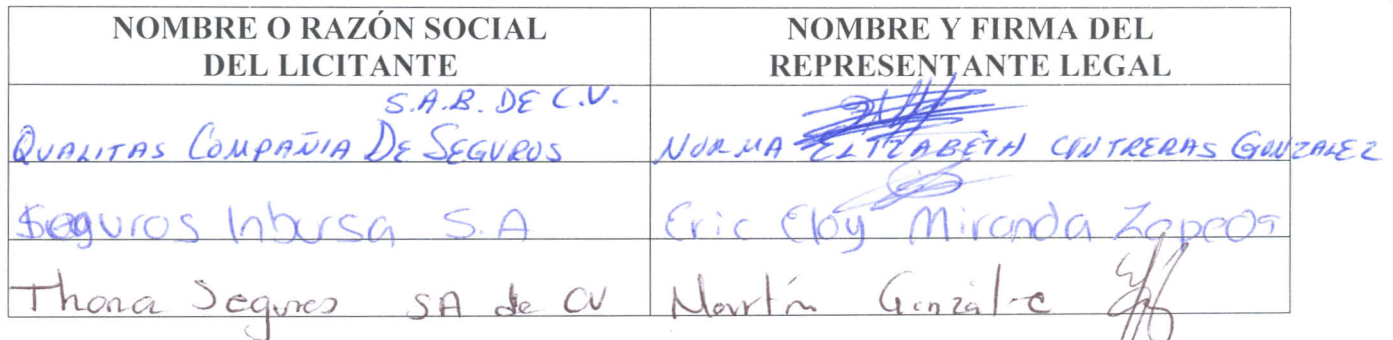 NOMBRE O RAZÓN SOCIAL
DEL LICITANTE
NOMBRE Y FIRMA DEL
REPRESENTANTE LEGAL
S.A.B. DE C.V.
QUALITAS COMPAÑIA DE SEGUROS
NORMA ELIZABETH CONTRERAS GONZALEZ
Seguros Inbursa S.A
Eric Eloy Miranda Zepeda
Thona Seguros SA de CV
Martín